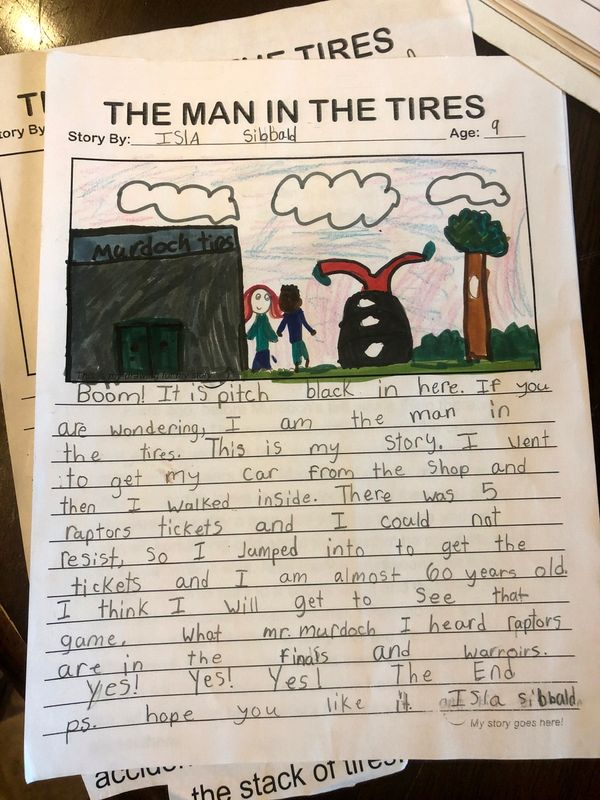 THE TIRES
TI
tory By
THE MAN IN THE TIRES
Story By: ISIA Sibbald Age: 9
Murdoch tires
Boom! It is pitch black in here. If you
are wondering, I am the man in
the tires. This is my story. I went
to get my car from the shop and
then I walked inside. There was 5
raptors tickets and I could not
resist, so I Jumped into to get the
tickets and I am almost 60 years old.
I think I will get to see that
game. What mr. murdoch I heard raptors
are in the finals and warroirs.
Yes! Yes! Yes! The End
ps. hope you like it. ISIa sibbald
My story goes here!
the stack of tires.